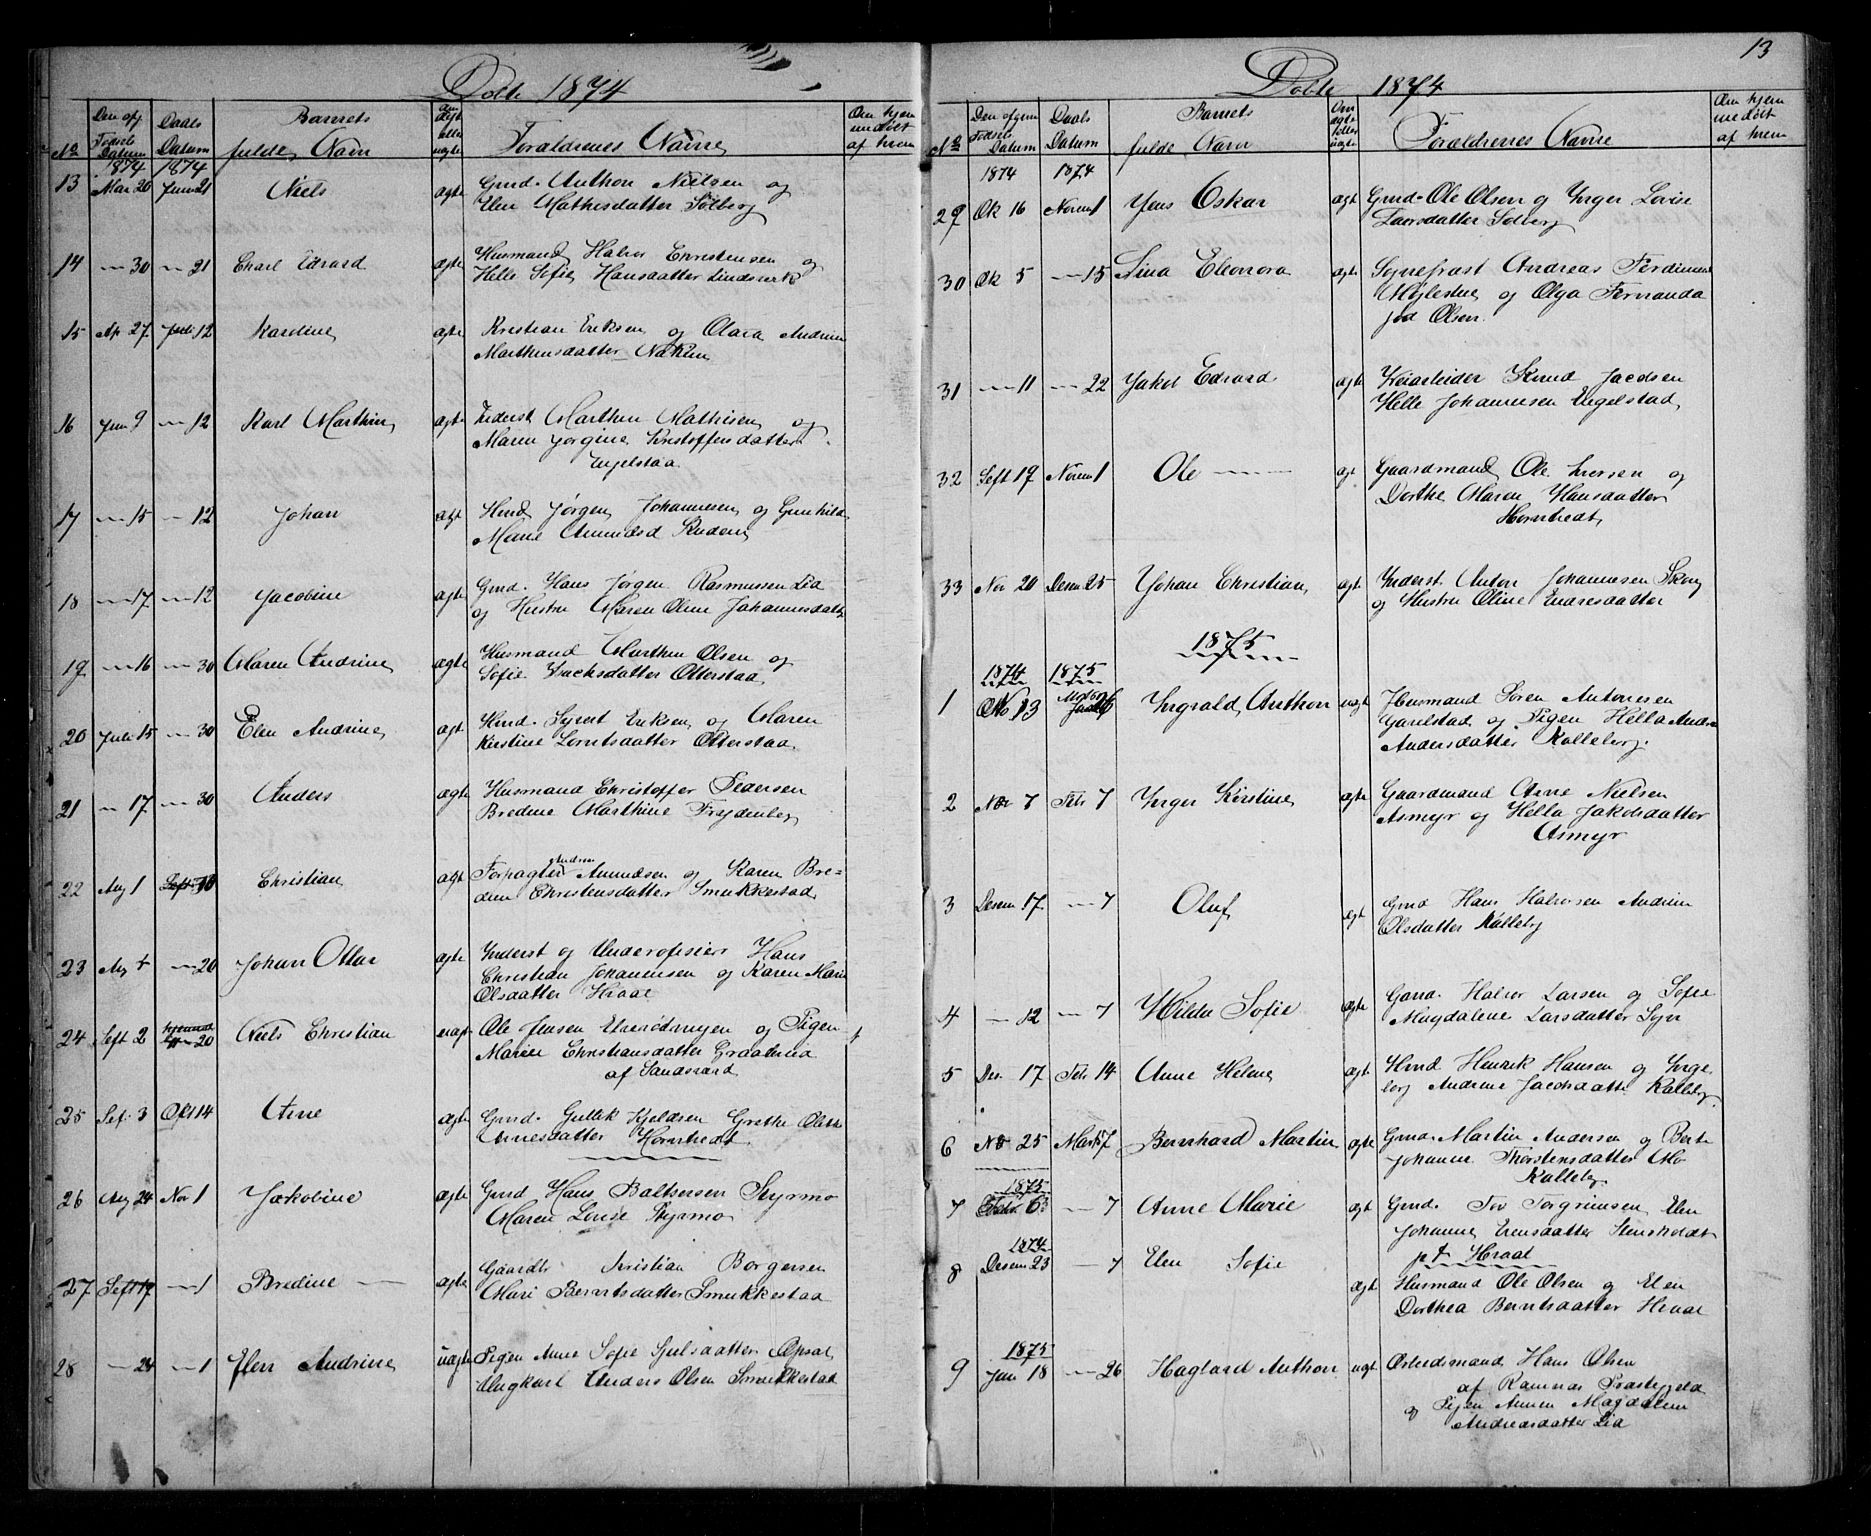 Døbte 1874
No
Den og Fødsels Datum
Daabs Datum
Barnets fulde Navn
Om ægte eller uægte
Forældrenes Navne
Om hjemmedøbt af hvem
1874 1874
13 Mai 20 Juni 21 Niels ægte Gmd. Anthon Nielsen og
Elen Mathisdatter Solberg
14 — 30 — 21 Charl Edvard ægte Husmand Halvor Christensen og
Helle Sofie Hansdatter Lindsverk
15 Ap. 27 Juli 12 Karoline ægte Kristian Eriksen og Olava Andrine
Marthensdatter
16 Jun 9 — 12 Karl Marthin ægte Inderst Marthin Mathisen og
Maren Jørgine Kristoffersdatter
Engelstad
17 — 15 — 12 Johan ægt Hmd Jørgen Johannesen og Gunhild
Marie Amundsd Ruden
18 — 17 — 12 Jacobine ægte Gmd. Hans Jørgen Rasmussen Lia
og Hustru Maren Oline Johannesdatt
19 — 16 — 30 Maren Andrine ægte Husmand Marthin Olsen og
Sofie Isacksdatter Otterstad
20 Juli 15 — 30 Elen Andrine ægt Hmd. Syvert Eriksen og Maren
Kirstine Lorntsdatter Otterstad
21 — 17 — 30 Anders ægte Husmand Christoffer Pedersen
Bredine Marthine Frydenberg
22 Aug 1 Sept 10 Christian ægt Forpagter Andrew Amundsen og Karen Bre-
dine Christensdatter Smukkestad
23 Aug 4 — 20 Johan Ottar ægte Inderst og Underofisier Hans
Christian Johannesen og Karen Marie
Olsdatter Hvaal
24 Sept 2 — 20 Niels Christian uægt Ole Jensen og Pigen
Maren Christiansdatter Graarud
af Sandsværd
25 Sep. 3 Okt 14 Arne ægte Gmd. Gullik Kjeldsen Grethe Olette
Arnesdatter Hornstvedt
26 Aug 24 Nov 1 Jakobine ægte Gmd Hans Baltsersen Styrmo
Maren Lovise Styrmo
27 Sept 17 — 1 Bredine — ægte Gaardbr Kristian Borgersen
Mari Berntsdatter Smukkestad
28 — 24 — 1 Elen Andrine uægte Pigen Anne Sofie Opsal
Ungkarl Anders Olsen Smukkestad
13
Døbte 1874
No
Den ofgem Fødsels Datum
Daabs Datum
Barnets fulde Navn
Om ægte eller uægte
Forældrenes Navne
Om hjemmedøbt af hvem
1874 1874
29 Ok 16 Novem 1 Jens Oskar ægt Gmd. Ole Olsen og Inger Lovise
Larsdatter Solberg
30 Ok 5 — 15 Lina Eleonora ægte Sognepræst Andreas Ferdinand
og Olga Fernanda
fød Olsen
31 — 11 — 22 Jakob Edvard ægte Veiarbeider Knud Jacobsen
Helle Johannesen Engelstad
32 Sept 19 Novem 1 Ole — ægt Gaardmand Ole Iversen og
Dorthe Maren Hansdatter
Hornstvedt
33 Nov 20 Desem 25 Johan Christian ægt Inderst Anton Johannesen Skog
og Hustru Oline Endresdatter
1875
1874 1875
1 No 13 26 Ingvald Anthon uægt Husmand Søren Antonesen
Jarelstad og Pigen Hella Andrea
Andersdatter Kalleberg.
2 Nov 7 Febr 7 Inger Kirstine ægte Gaardmand Arne Nielsen
Asmyr og Hella Jakobsdatter
Asmyr
3 Desem 17. — 7 Oluf ægt Gmd Hans Halvorsen Andrine
Olsdatter Kalleberg
4 — 12 — 7 Hilda Sofie ægte Gmd. Halvor Larsen og Sofie
Magdalene Larsdatter
5 Des. 17 Febr 14 Anne Helene ægt Hmd Henrik Hansen og Inge-
borg Andrine Jacobsdatter Kalleberg
6 No 25 Marts 7 Bernhard Martin ægte Gmd. Martin Andersen og Berte
Johanne Thorstensdatter Mo
Kalleberg
1875
7 Febr 6 — 7 Anne Marie ægt Gmd. Tov Torgrimsen Elen
Johanne Evensdatter Stensholdt
pt Hvaal
1874
8 Desem 23 — 7 Elen Sofie ægt Husmand Ole Olsen og Elen
Dorthea Berntsdatter Hvaal
1875
9 Jan 18 — 26 Haglard Anthon uægt Hans Olsen
af Ramnæs Præstegjeld
og Pigen Annen Magdalene
Andreasdatter Lia